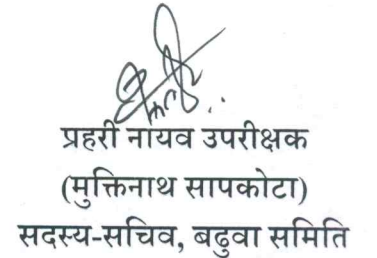 प्रहरी नायव उपरीक्षक
(मुक्तिनाथ सापकोटा)
सदस्य-सचिव, बढुवा समिति